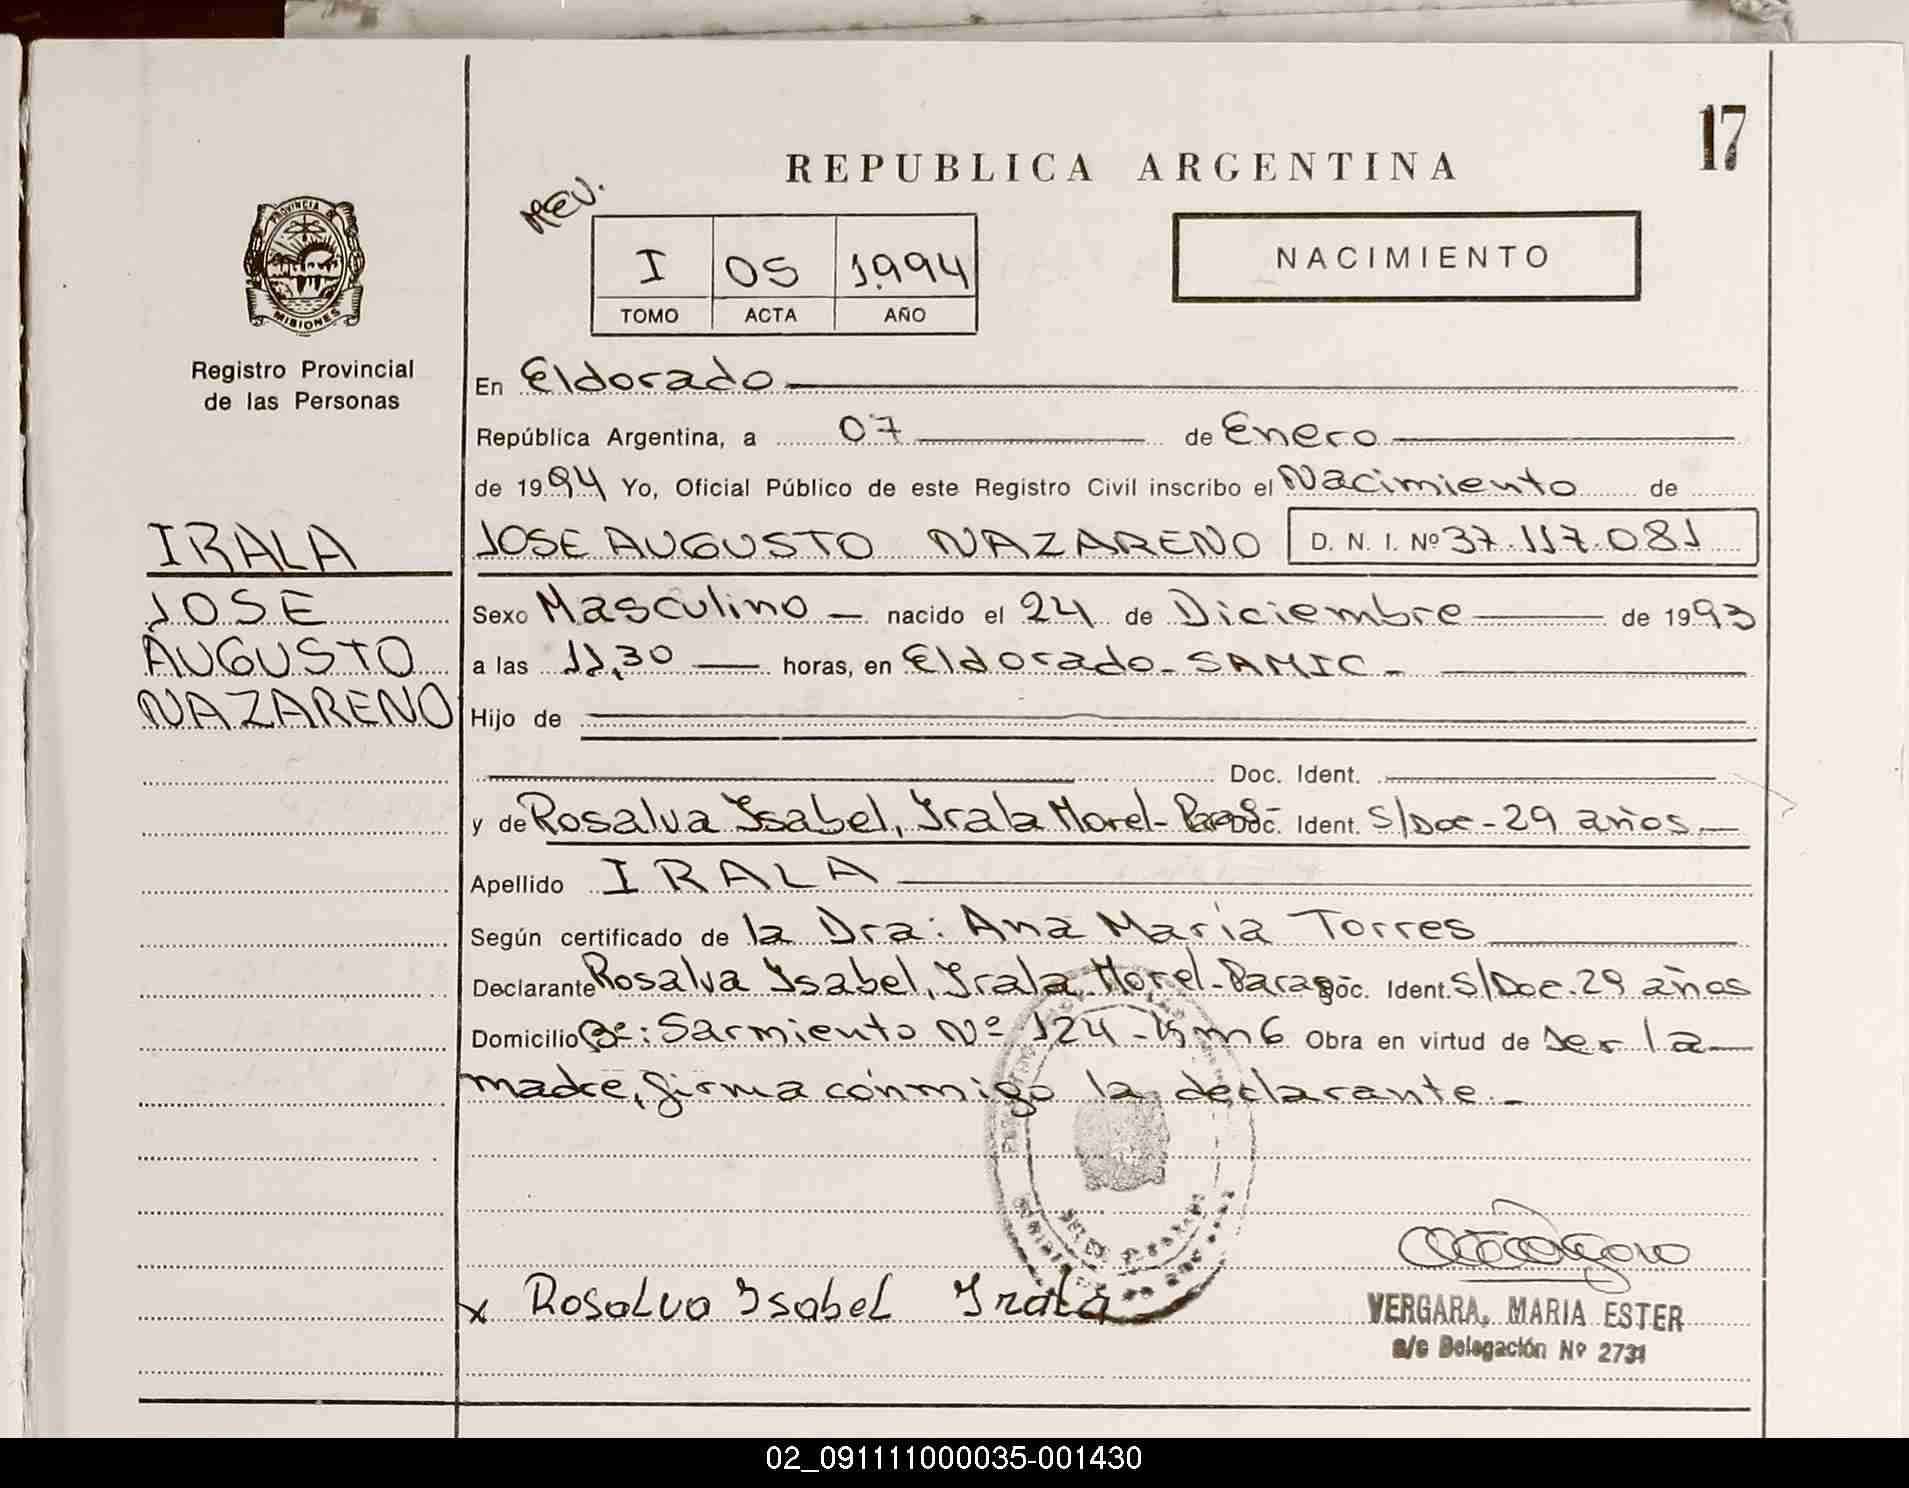 17
REPUBLICA ARGENTINA
REV.
PROVINCIA DE
MISIONES
I 05 1.994
TOMO ACTA AÑO
NACIMIENTO
Registro Provincial
de las Personas
En Eldorado
República Argentina, a 07 de Enero
de 1994 Yo, Oficial Público de este Registro Civil inscribo el Nacimiento de
IRALA
JOSE
AUGUSTO
NAZARENO
JOSE AUGUSTO NAZARENO D. N. I. Nº 37.117.081
Sexo Masculino — nacido el 24 de Diciembre de 1993
a las 11,30 — horas, en Eldorado - SAMIC -
Hijo de
Doc. Ident.
y de Rosalva Ysabel, Yrala Morel - Parag- Doc. Ident. S/Doc - 29 años —
Apellido IRALA
Según certificado de la Dra: Ana María Torres
Declarante Rosalva Ysabel, Yrala Morel - Parag Doc. Ident. S/Doc. 29 años
Domicilio Bº: Sarmiento Nº 124 - Km 6 Obra en virtud de ser la
madre, firma conmigo la declarante. -
x Rosalva Ysabel Yrala
VERGARA, MARIA ESTER
a/c Delegación Nº 2731
02_091111000035-001430